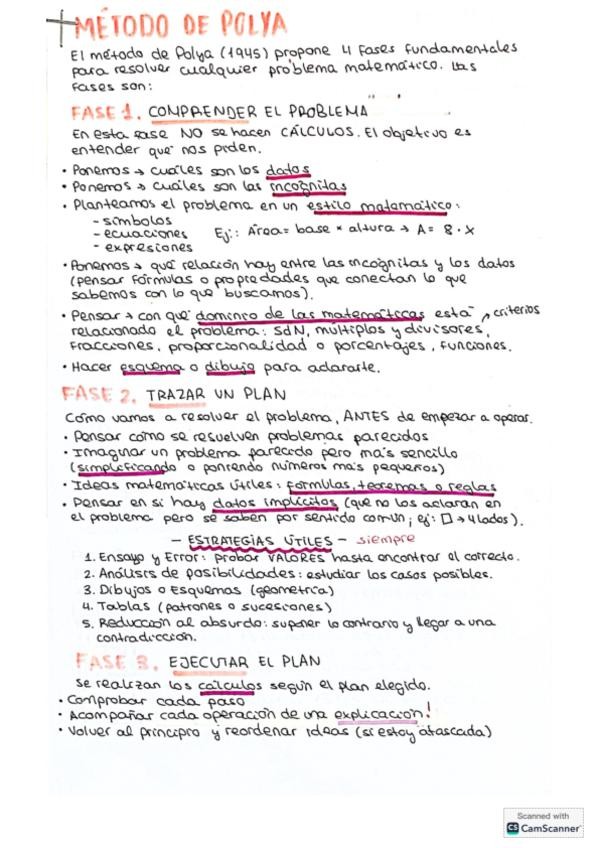 MÉTODO DE POLYA
El método de Polya (1945) propone 4 fases fundamentales
para resolver cualquier problema matemático. Las
fases son:
FASE 1. COMPRENDER EL PROBLEMA
En esta fase NO se hacen CÁLCULOS. El objetivo es
entender qué nos piden.
• Ponemos → cuáles son los datos
• Ponemos → cuáles son las incógnitas
• Planteamos el problema en un estilo matemático:
- símbolos
- ecuaciones Ej: Área = base × altura → A = 8 · x
- expresiones
• Ponemos → qué relación hay entre las incógnitas y los datos
(pensar fórmulas o propiedades que conectan lo que
sabemos con lo que buscamos).
• Pensar → con qué dominio de las matemáticas está criterios
relacionado el problema: SdN, múltiplos y divisores,
fracciones, proporcionalidad o porcentajes, funciones.
• Hacer esquema o dibujo para aclararte.
FASE 2. TRAZAR UN PLAN
Cómo vamos a resolver el problema, ANTES de empezar a operar.
• Pensar cómo se resuelven problemas parecidos
• Imaginar un problema parecido pero más sencillo
(simplificando o poniendo números más pequeños)
• Ideas matemáticas útiles: fórmulas, teoremas o reglas
• Pensar en si hay datos implícitos (que no los aclaran en
el problema pero se saben por sentido común; ej: □ → 4 lados).
- ESTRATEGIAS ÚTILES - siempre
1. Ensayo y Error: probar VALORES hasta encontrar el correcto.
2. Análisis de posibilidades: estudiar los casos posibles.
3. Dibujos o Esquemas (geometría)
4. Tablas (patrones o sucesiones)
5. Reducción al absurdo: suponer lo contrario y llegar a una
contradicción.
FASE 3. EJECUTAR EL PLAN
Se realizan los cálculos según el plan elegido.
• Comprobar cada paso
• Acompañar cada operación de una explicación!
• Volver al principio y reordenar ideas (si estoy atascada)
Scanned with
CS CamScanner